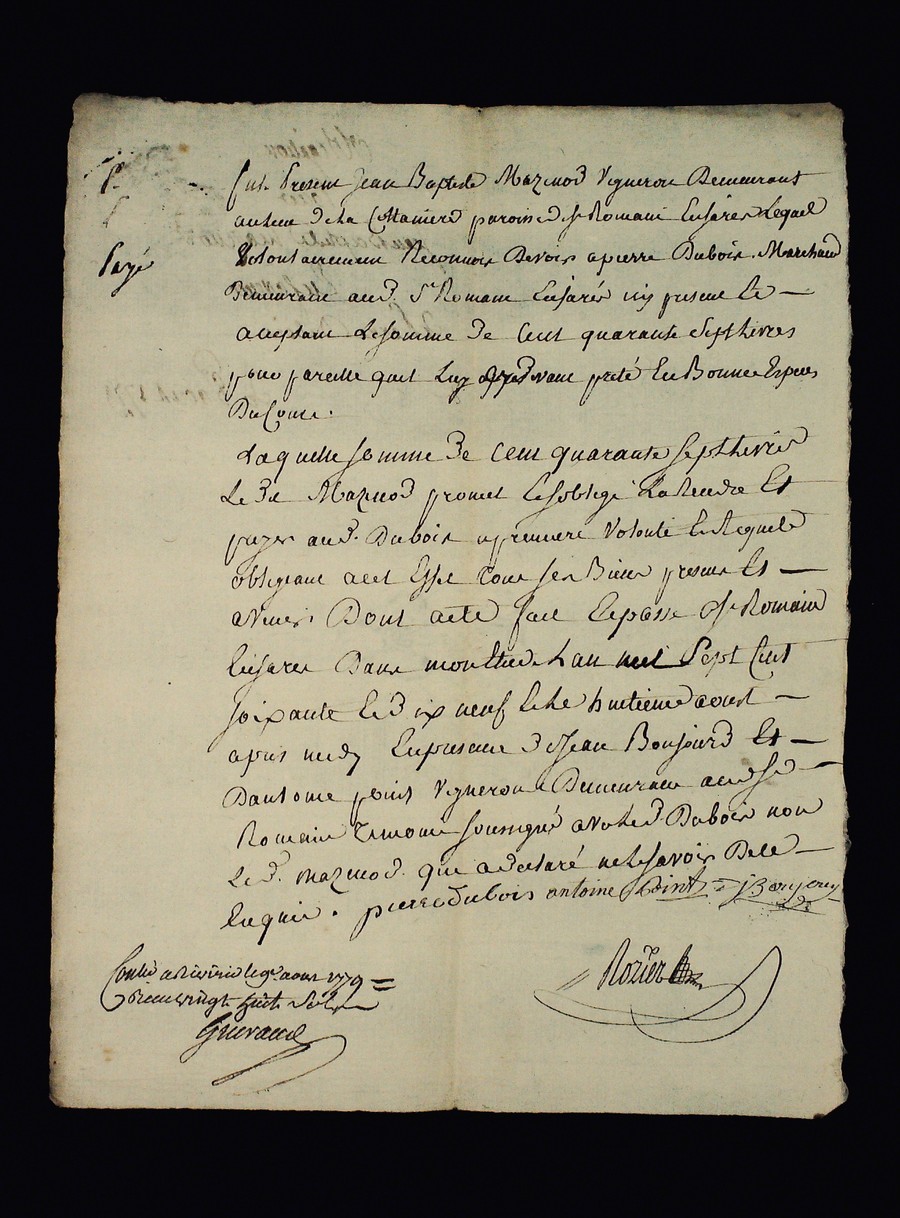 P.
Payé
fut Present Jean Baptiste Mazenod Vigneron Demeurant
au lieu de la paroisse de St Romain En Jarés Lequel
Volontairement Reconnois Devoir a pierre Dubois Marchand
Demeurant aud. St Romain En Jarés icy present Et —
acceptant La somme De Cent quarante Sept Livres
pour pareille quil Luy a preté En Bonnes Especes
De Cours.
Laquelle somme De Cent quarante Sept Livres
Le d. Mazenod promet Et soblige La Rendre Et
payer aud. Dubois a premiere Volonté Et Requete
obligeant a cet Effet Tous ses Biens presens Et —
avenirs Dont acte fait Et passé a St Romain
En Jarés Dans mon Etude Lan mil Sept Cent
soixante Et dix neuf Et Le huitieme aoust —
apres midy En presence de Sr Jean Bonjour Et —
Dantoine point Vignerons Demeurans aud. St —
Romain Temoins soussignés avec Led. Dubois non
Le d. Mazenod qui a Declaré ne Le savoir De ce —
Enquis. pierre Dubois antoine Point J Bonjour
Rozier
Conlé a le 9e aout 1779 =
vingt huit Sols
Gueraud